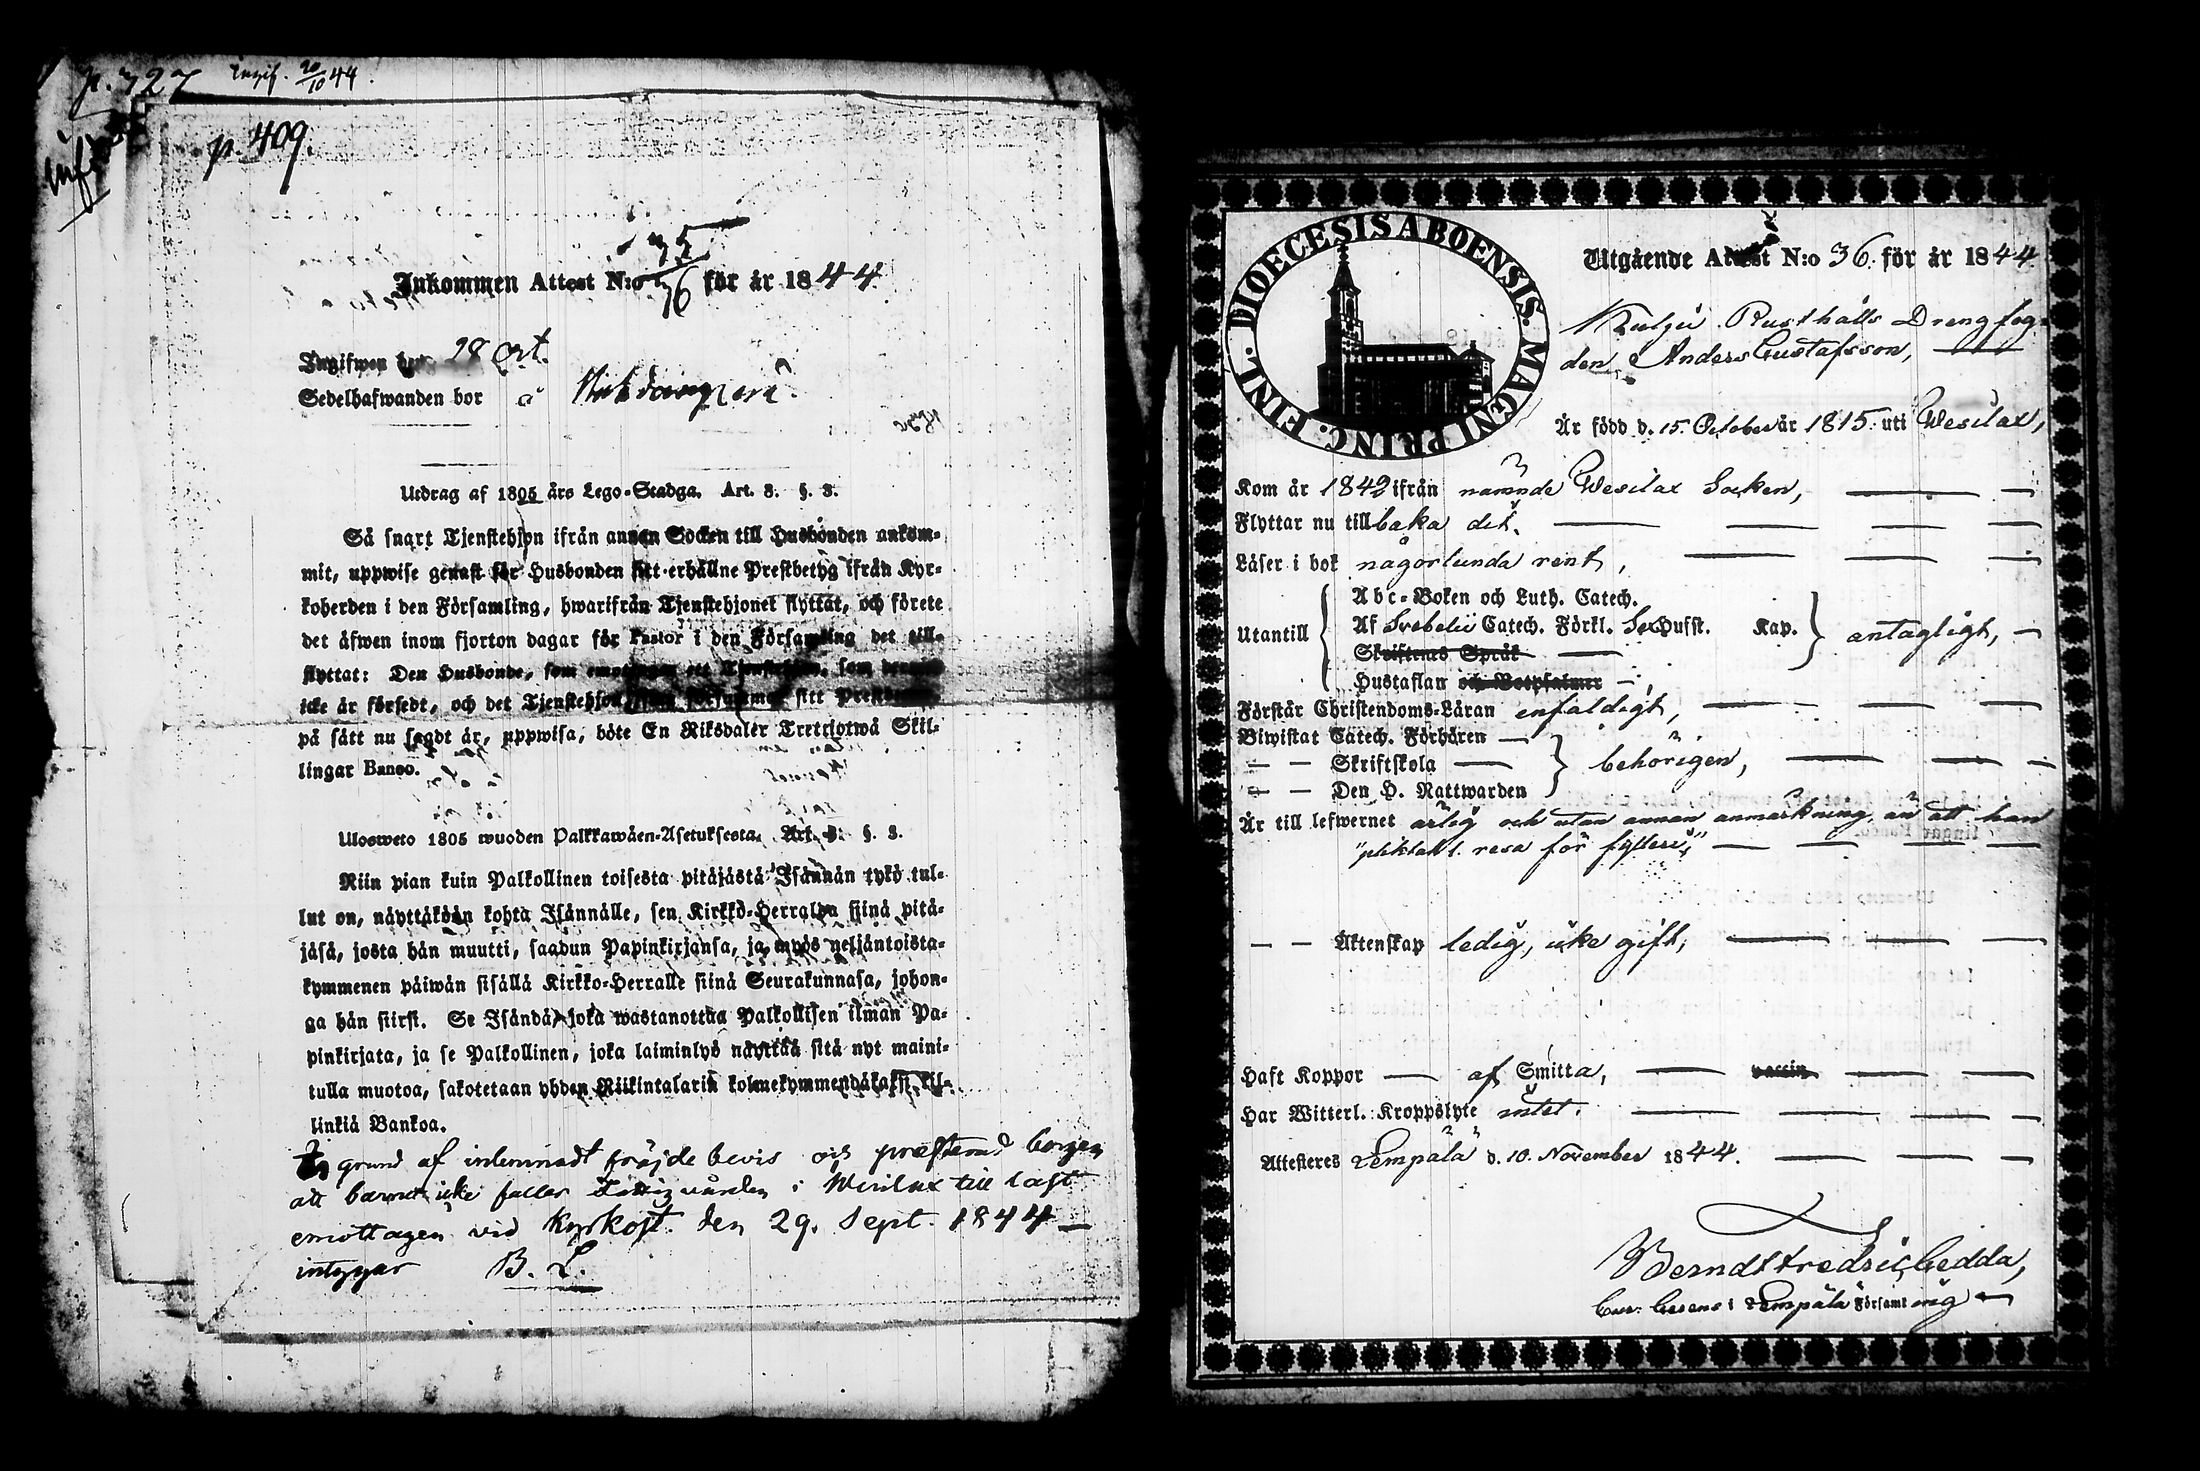 p. 727 Ingif. 20/10 44.
p. 409.
Inkommen Attest N:o 75/76 för år 1844
Ingifwen den 28 Oct.
Sedelhafwanden bor å
Utdrag af 1805 års Lego-Stadga. Art. 3. §. 3.
Så snart Tjenstehjon ifrån annan Socken till Husbonden ankom-
mit, uppwise genast för Husbonden sitt erhållne Prestbetyg ifrån Kyr-
koherden i den Församling, hwarifrån Tjenstehjonet flyttat, och förete
det äfwen inom fjorton dagar för Pastor i den Församling det till-
flyttat: Den Husbonde, som emottager ett Tjenstehjon, som dermed
icke är försedt, och det Tjenstehjon, som försummar sitt Prestbetyg
på sätt nu sagdt är, uppwisa, böte En Riksdaler Trettiotwå Skil-
lingar Banco.
Ulosweto 1805 wuoden Palkkawäen-Asetuksesta. Art. 3. §. 3.
Niin pian kuin Palkollinen toisesta pitäjästä Isännän tykö tul-
lut on, näyttäköön kohta Isännälle, sen Kirkko-Herralda siinä pitä-
jäsä, josta hän muutti, saadun Papinkirjansa, ja myös neljäntoista-
kymmenen päiwän sisällä Kirkko-Herralle siinä Seurakunnasa, johon-
ga hän siirsi. Se Isändä, joka wastanottaa Palkollisen ilman Pa-
pinkirjata, ja se Palkollinen, joka laiminlyö näyttää sitä nyt maini-
tulla muotoa, sakotetaan yhden Riikintalarin kolmekymmendäkaksi kil-
linkiä Bankoa.
På grund af inlemnadt fräjde bevis och præsterad borgen
att barnet icke faller Fattigvården i Wesilax till last
emottagen vid Kyrkost. den 29. Sept. 1844 —
intygar B. L.
DIOECESIS ABOENSIS. MAGNI PRINC. FINL.
Utgående Attest N:o 36. för år 1844.
Kulju Rusthålls Drengfog-
den Anders Gustafsson,
Är född d. 15. October år 1815. uti Wesilax,
Kom år 1842 ifrån nämnde Wesilax Socken,
Flyttar nu tillbaka dit.
Läser i bok någorlunda rent,
Abc-Boken och Luth. Catech.
Utantill Af Svebelii Catech. Förkl. Sex Hufst. Kap. antagligt,
Skriftenes Språk
Hustaflan och Botpsalmer
Förstår Christendoms-Läran enfaldigt,
Biwistat Catech. Förhören
— — Skriftskola behörigen,
— — Den H. Nattwarden
Är till lefwernet ärlig och utan annan anmärkning, än att han
"pliktat 1. resa för fylleri,"
— — Äktenskap ledig, icke gift,
Haft Koppor — af Smitta, vaccin
Har Witterl. Kroppslyte intet.
Attesteres Lempälä d. 10. November 1844.
Berndt Fredric Gedda,
i Lempälä Församling